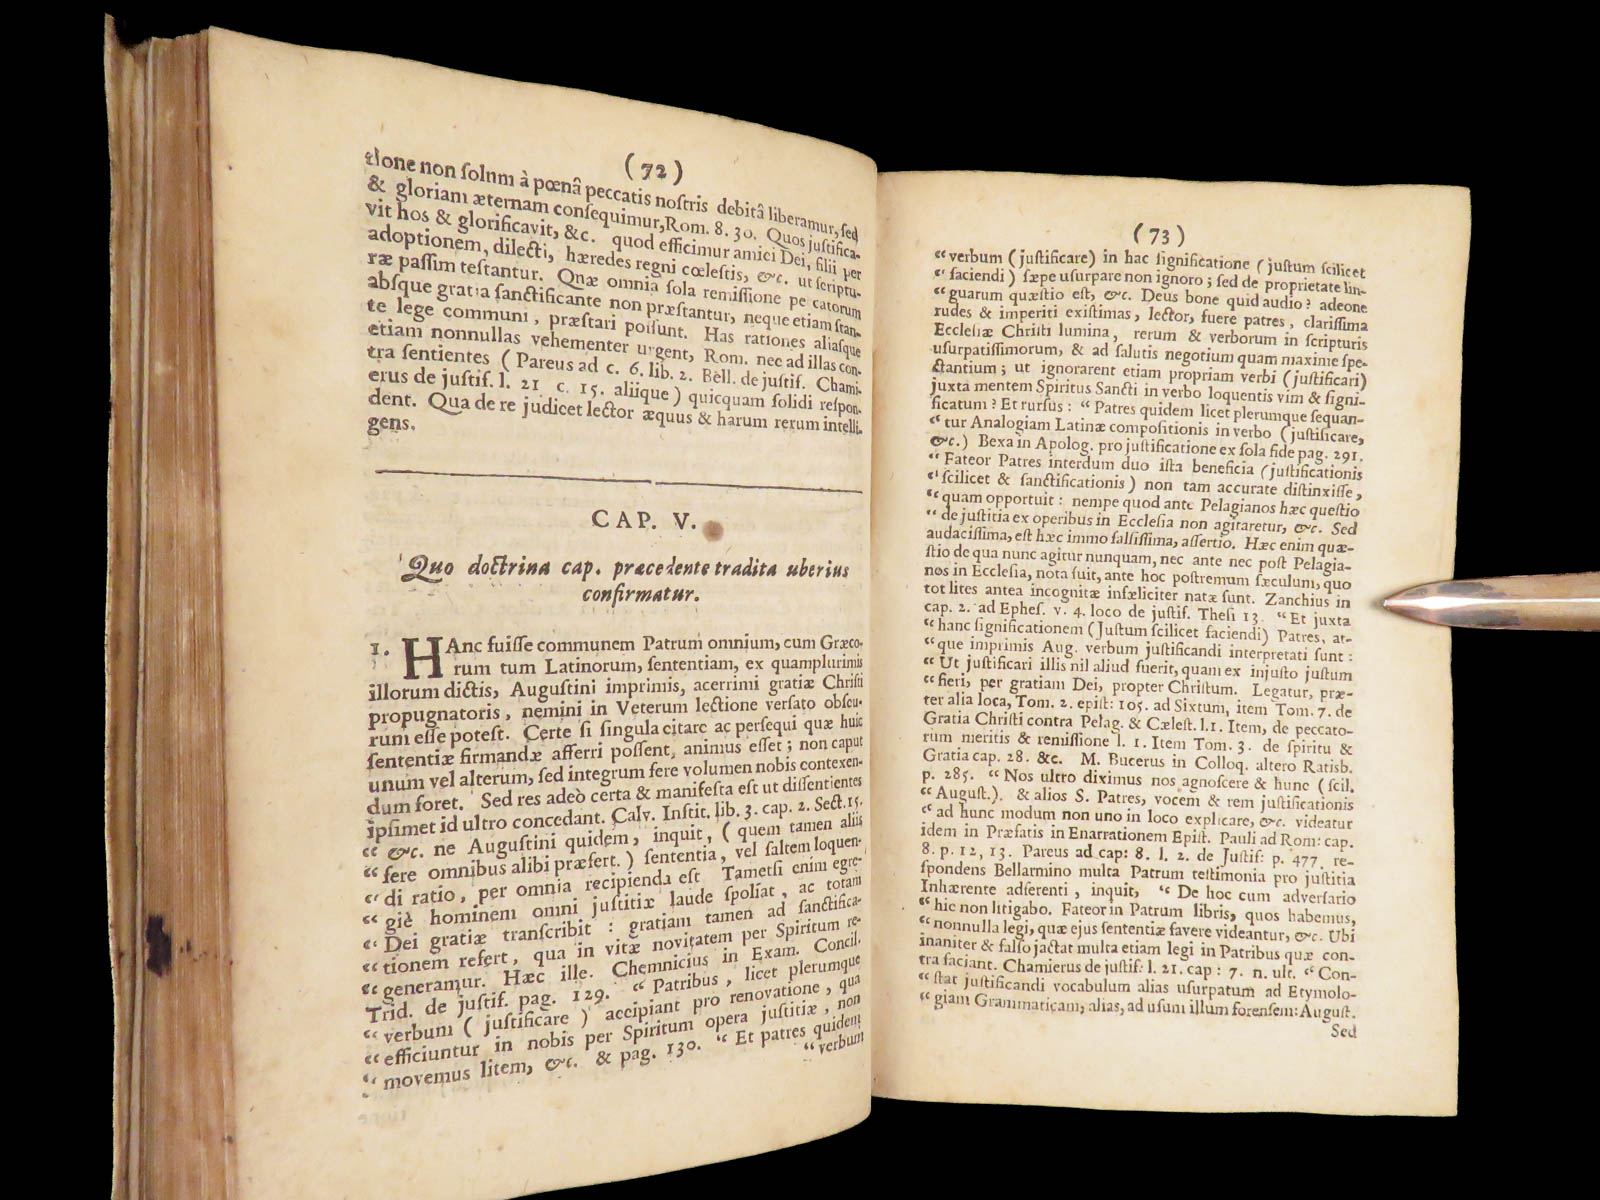 (72)
tione non solum à pœnâ peccatis nostris debitâ liberamur, sed
& gloriam æternam consequimur, Rom. 8. 30. Quos justifica-
vit hos & glorificavit, &c. quod efficimur amici Dei, filii per
adoptionem, dilecti, hæredes regni cœlestis, &c. ut scriptu-
ræ passim testantur. Quæ omnia sola remissione peccatorum
absque gratia sanctificante non præstantur, neque etiam stan-
te lege communi, præstari possunt. Has rationes aliasque
etiam nonnullas vehementer urgent, Rom. nec ad illas con-
tra sentientes (Pareus ad c. 6. lib. 2. Bell. de justif. Chami-
erus de justif. l. 21 c. 15. aliique) quicquam solidi respon-
dent. Qua de re judicet lector æquus & harum rerum intelli-
gens.
CAP. V.
Quo doctrina cap. præcedente tradita uberius
confirmatur.
1. HAnc fuisse communem Patrum omnium, cum Græco-
rum tum Latinorum, sententiam, ex quamplurimis
illorum dictis, Augustini imprimis, acerrimi gratiæ Christi
propugnatoris, nemini in Veterum lectione versato obscu-
rum esse potest. Certe si singula citare ac persequi quæ huic
sententiæ firmandæ afferri possent, animus esset; non caput
unum vel alterum, sed integrum fere volumen nobis contexen-
dum foret. Sed res adeò certa & manifesta est ut dissentientes
ipsimet id ultro concedant. Calv. Instit. lib. 3. cap. 2. Sect. 15.
“ &c. ne Augustini quidem, inquit, (quem tamen aliis
“ fere omnibus alibi præfert.) sententia, vel saltem loquen-
“ di ratio, per omnia recipienda est Tametsi enim egre-
“ giè hominem omni justitiæ laude spoliat, ac totam
“ Dei gratiæ transcribit: gratiam tamen ad sanctifica-
“ tionem refert, qua in vitæ novitatem per Spiritum re-
“ generamur. Hæc ille. Chemnicius in Exam. Concil.
Trid. de justif. pag. 129. “ Patribus, licet plerumque
“ verbum (justificare) accipiant pro renovatione, qua
“ efficiuntur in nobis per Spiritum opera justitiæ, non
“ movemus litem, &c. & pag. 130. “ Et patres quidem
“ verbum
(73)
“ verbum (justificare) in hac significatione (justum scilicet
“ faciendi) sæpe usurpare non ignoro; sed de proprietate lin-
“ guarum quæstio est, &c. Deus bone quid audio? adeone
rudes & imperiti existimas, lector, fuere patres, clarissima
Ecclesiæ Christi lumina, rerum & verborum in scripturis
usurpatissimorum, & ad salutis negotium quam maxime spe-
ctantium; ut ignorarent etiam propriam verbi (justificari)
juxta mentem Spiritus Sancti in verbo loquentis vim & signi-
ficatum? Et rursus: “ Patres quidem licet plerumque sequan-
“ tur Analogiam Latinæ compositionis in verbo (justificare,
&c.) Bexa in Apolog. pro justificatione ex sola fide pag. 291.
“ Fateor Patres interdum duo ista beneficia (justificationis
“ scilicet & sanctificationis) non tam accurate distinxisse,
“ quam opportuit: nempe quod ante Pelagianos hæc questio
“ de justitia ex operibus in Ecclesia non agitaretur, &c. Sed
audacissima, est hæc immo falsissima, assertio. Hæc enim quæ-
stio de qua nunc agitur nunquam, nec ante nec post Pelagia-
nos in Ecclesia, nota fuit, ante hoc postremum sæculum, quo
tot lites antea incognitæ infæliciter natæ sunt. Zanchius in
cap. 2. ad Ephes. v. 4. loco de justif. Thesi 13. “ Et juxta
“ hanc significationem (Justum scilicet faciendi) Patres, at-
“ que imprimis Aug. verbum justificandi interpretati sunt:
“ Ut justificari illis nil aliud fuerit, quam ex injusto justum
“ fieri, per gratiam Dei, propter Christum. Legatur, præ-
ter alia loca, Tom. 2. epist: 105. ad Sixtum, item Tom. 7. de
Gratia Christi contra Pelag. & Cælest. l.1. Item, de peccato-
rum meritis & remissione l. 1. Item Tom. 3. de spiritu &
Gratia cap. 28. &c. M. Bucerus in Colloq. altero Ratisb.
p. 285. “ Nos ultro diximus nos agnoscere & hunc (scil.
“ August.). & alios S. Patres, vocem & rem justificationis
“ ad hunc modum non uno in loco explicare, &c. videatur
idem in Præfatis in Enarrationem Epist. Pauli ad Rom: cap.
8. p. 12, 13. Pareus ad cap: 8. l. 2. de Justif: p. 477. re-
spondens Bellarmino multa Patrum testimonia pro justitia
Inhærente adferenti, inquit, “ De hoc cum adversario
“ hic non litigabo. Fateor in Patrum libris, quos habemus,
“ nonnulla legi, quæ ejus sententiæ favere videantur, &c. Ubi
inaniter & falso jactat multa etiam legi in Patribus quæ con-
tra faciant. Chamierus de justif: l. 21. cap: 7. n. ult. “ Con-
“ stat justificandi vocabulum alias usurpatum ad Etymolo-
“ giam Grammaticam, alias, ad usum illum forensem: August.
Sed